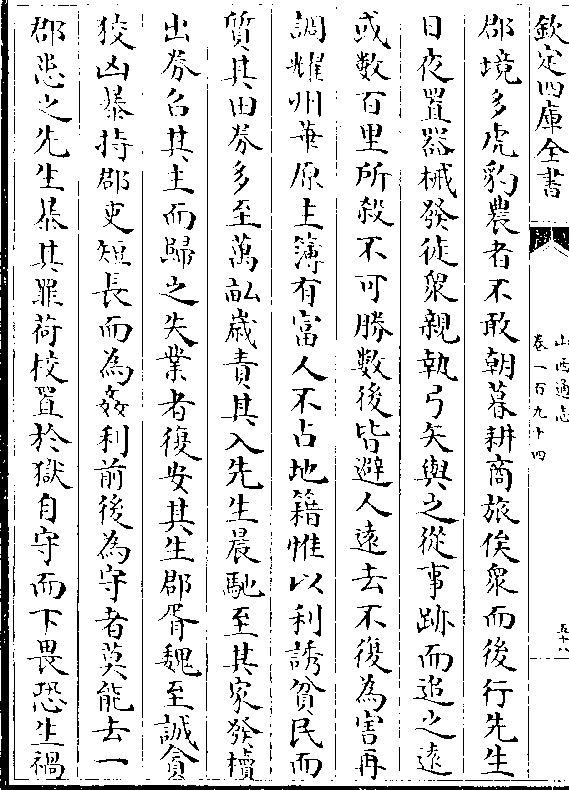 欽定四庫全書
山西通志
卷一百九十四
五十八
郡境多虎豹農者不敢朝暮耕商旅俟衆而後行先生
日夜置器械發徒衆親執弓矢與之從事跡而追之遠
或數百里所殺不可勝數後皆避人遠去不復為害再
調耀州華原主簿有富人不占地籍惟以利誘貧民而
質其田劵多至萬畝嵗責其入先生晨馳至其家發櫝
出劵召其主而歸之失業者復安其生郡胥魏至誠貪
狡凶暴持郡吏短長而為姦利前後為守者莫能去一
郡患之先生暴其罪荷校置於獄自守而下畏恐生禍